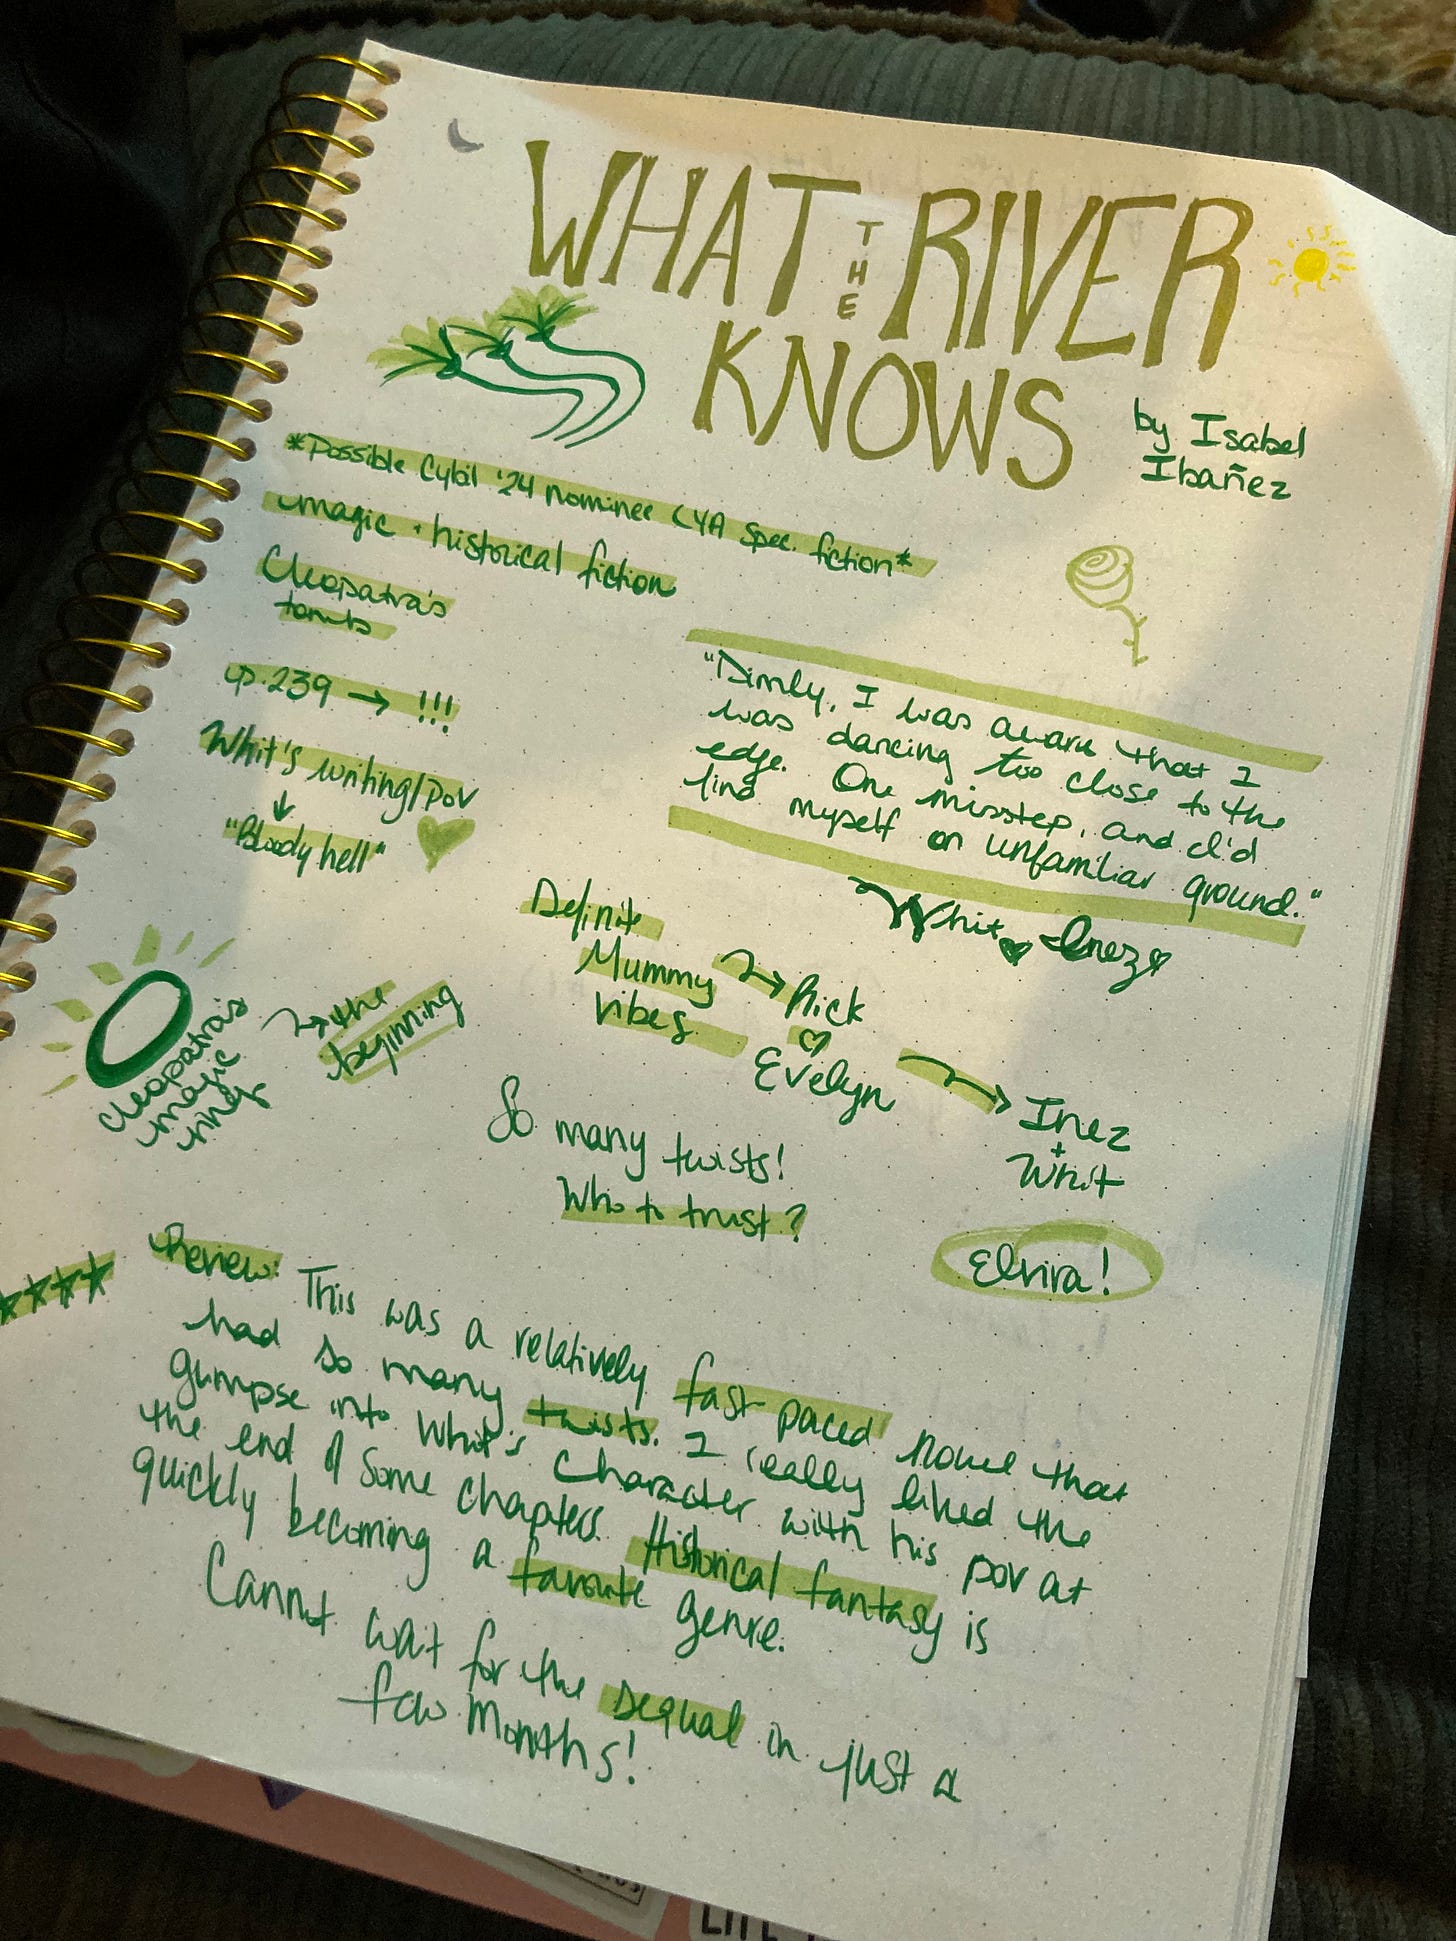 WHAT THE RIVER
KNOWS
by Isabel
Ibañez
*Possible Cybil '24 nominee (YA Spec. fiction*
magic + historical fiction
Cleopatra's
tomb
p.239 → !!!
Whit's writing/POV
↓
"Bloody hell"
"Dimly, I was aware that I
was dancing too close to the
edge. One misstep, and I'd
find myself on unfamiliar ground."
Whit Inez
Definite
Mummy
vibes
→ Rick
♡
Evelyn
→ Inez
+
Whit
Cleopatra's
magic
ring
→ the
beginning
So many twists!
Who to trust?
Elvira!
Review: This was a relatively fast paced novel that
had so many twists. I really liked the
glimpse into Whit's character with his pov at
the end of some chapters. Historical fantasy is
quickly becoming a favorite genre.
Cannot wait for the sequal in just a
few months!